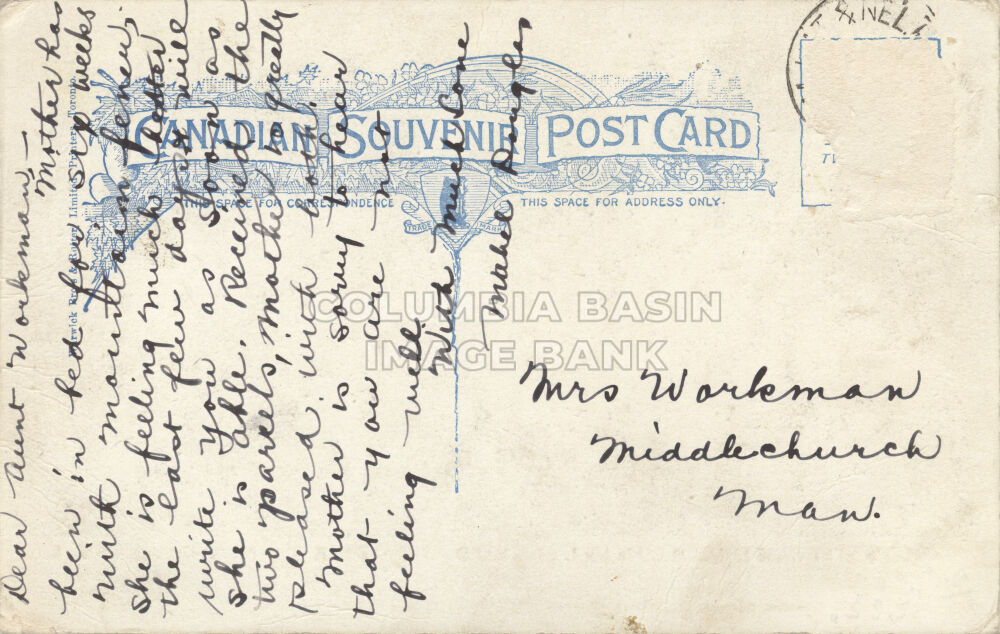 Dear Aunt Workman —
Mother has
been in bed for six weeks
with mountain fever.
She is feeling much better
the last few days & will
write you as soon as
she is able. Received the
two parcels, Mother so greatly
pleased with both.
Mother is sorry to hear
that you are not
feeling well
With much love
Mabel Douglas
CANADIAN SOUVENIR POST CARD
THIS SPACE FOR CORRESPONDENCE
THIS SPACE FOR ADDRESS ONLY.
TRADE MARK
Warwick Bro's & Rutter, Limited, Printers, Toronto.
COLUMBIA BASIN
IMAGE BANK
Mrs Workman
Middlechurch
Man.